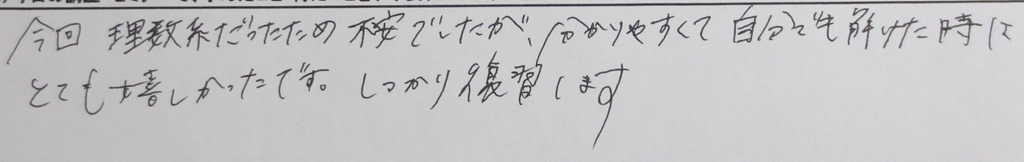 今回 理数系だったため 不安でしたが、分かりやすくて 自分でも解けた時は
とても嬉しかったです。しっかり復習します